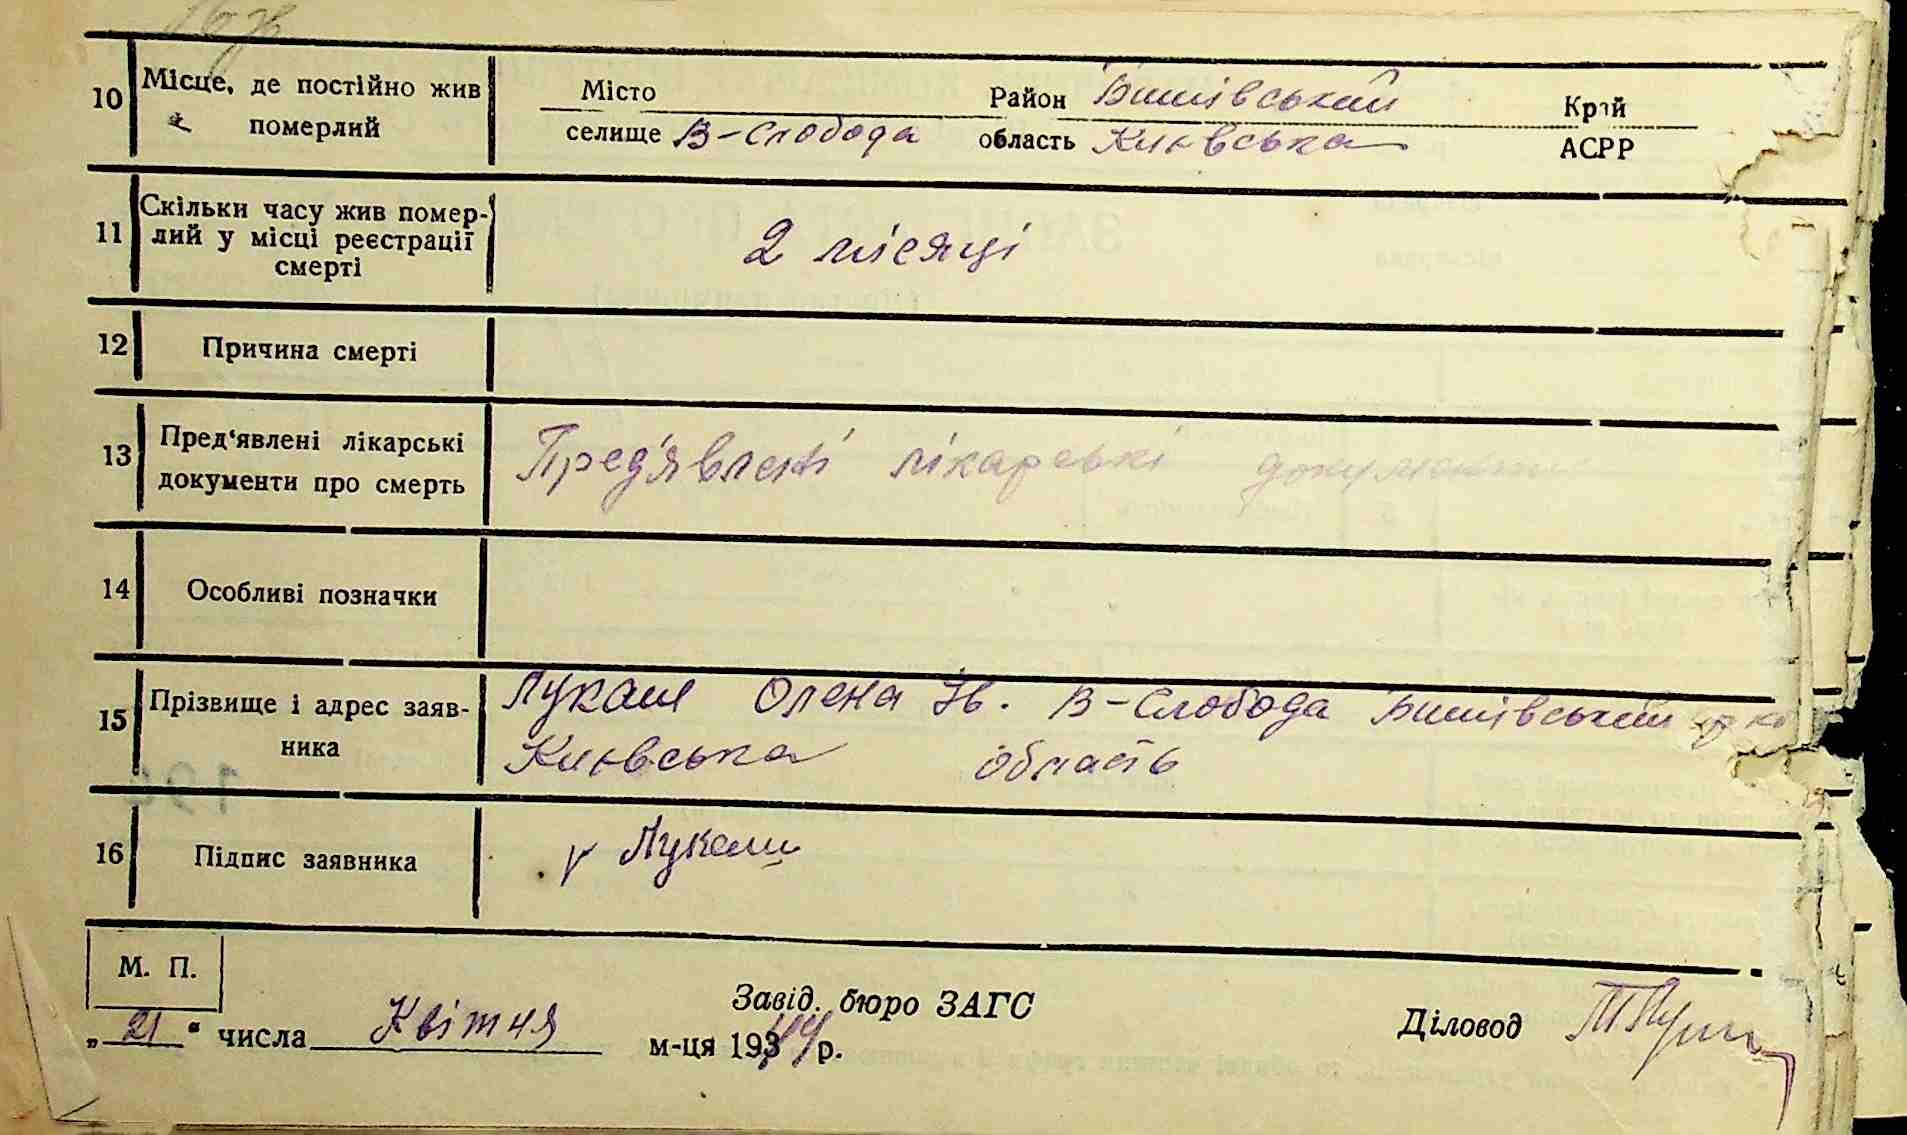 10 Місце, де постійно жив померлий Місто селище В-Слобода Район Бишівський область Київська Край АСРР
11 Скільки часу жив помер-
лий у місці реєстрації
смерті 2 місяці
12 Причина смерті
13 Пред‘явлені лікарські
документи про смерть Пред'явлені лікарські документи
14 Особливі позначки
15 Прізвище і адрес заяв-
ника Лукаш Олена Ів. В-Слобода Бишівський
Київська область
16 Підпис заявника Лукаш
М. П.
Завід. бюро ЗАГС
„21“ числа Квітня м-ця 1944 р.
Діловод